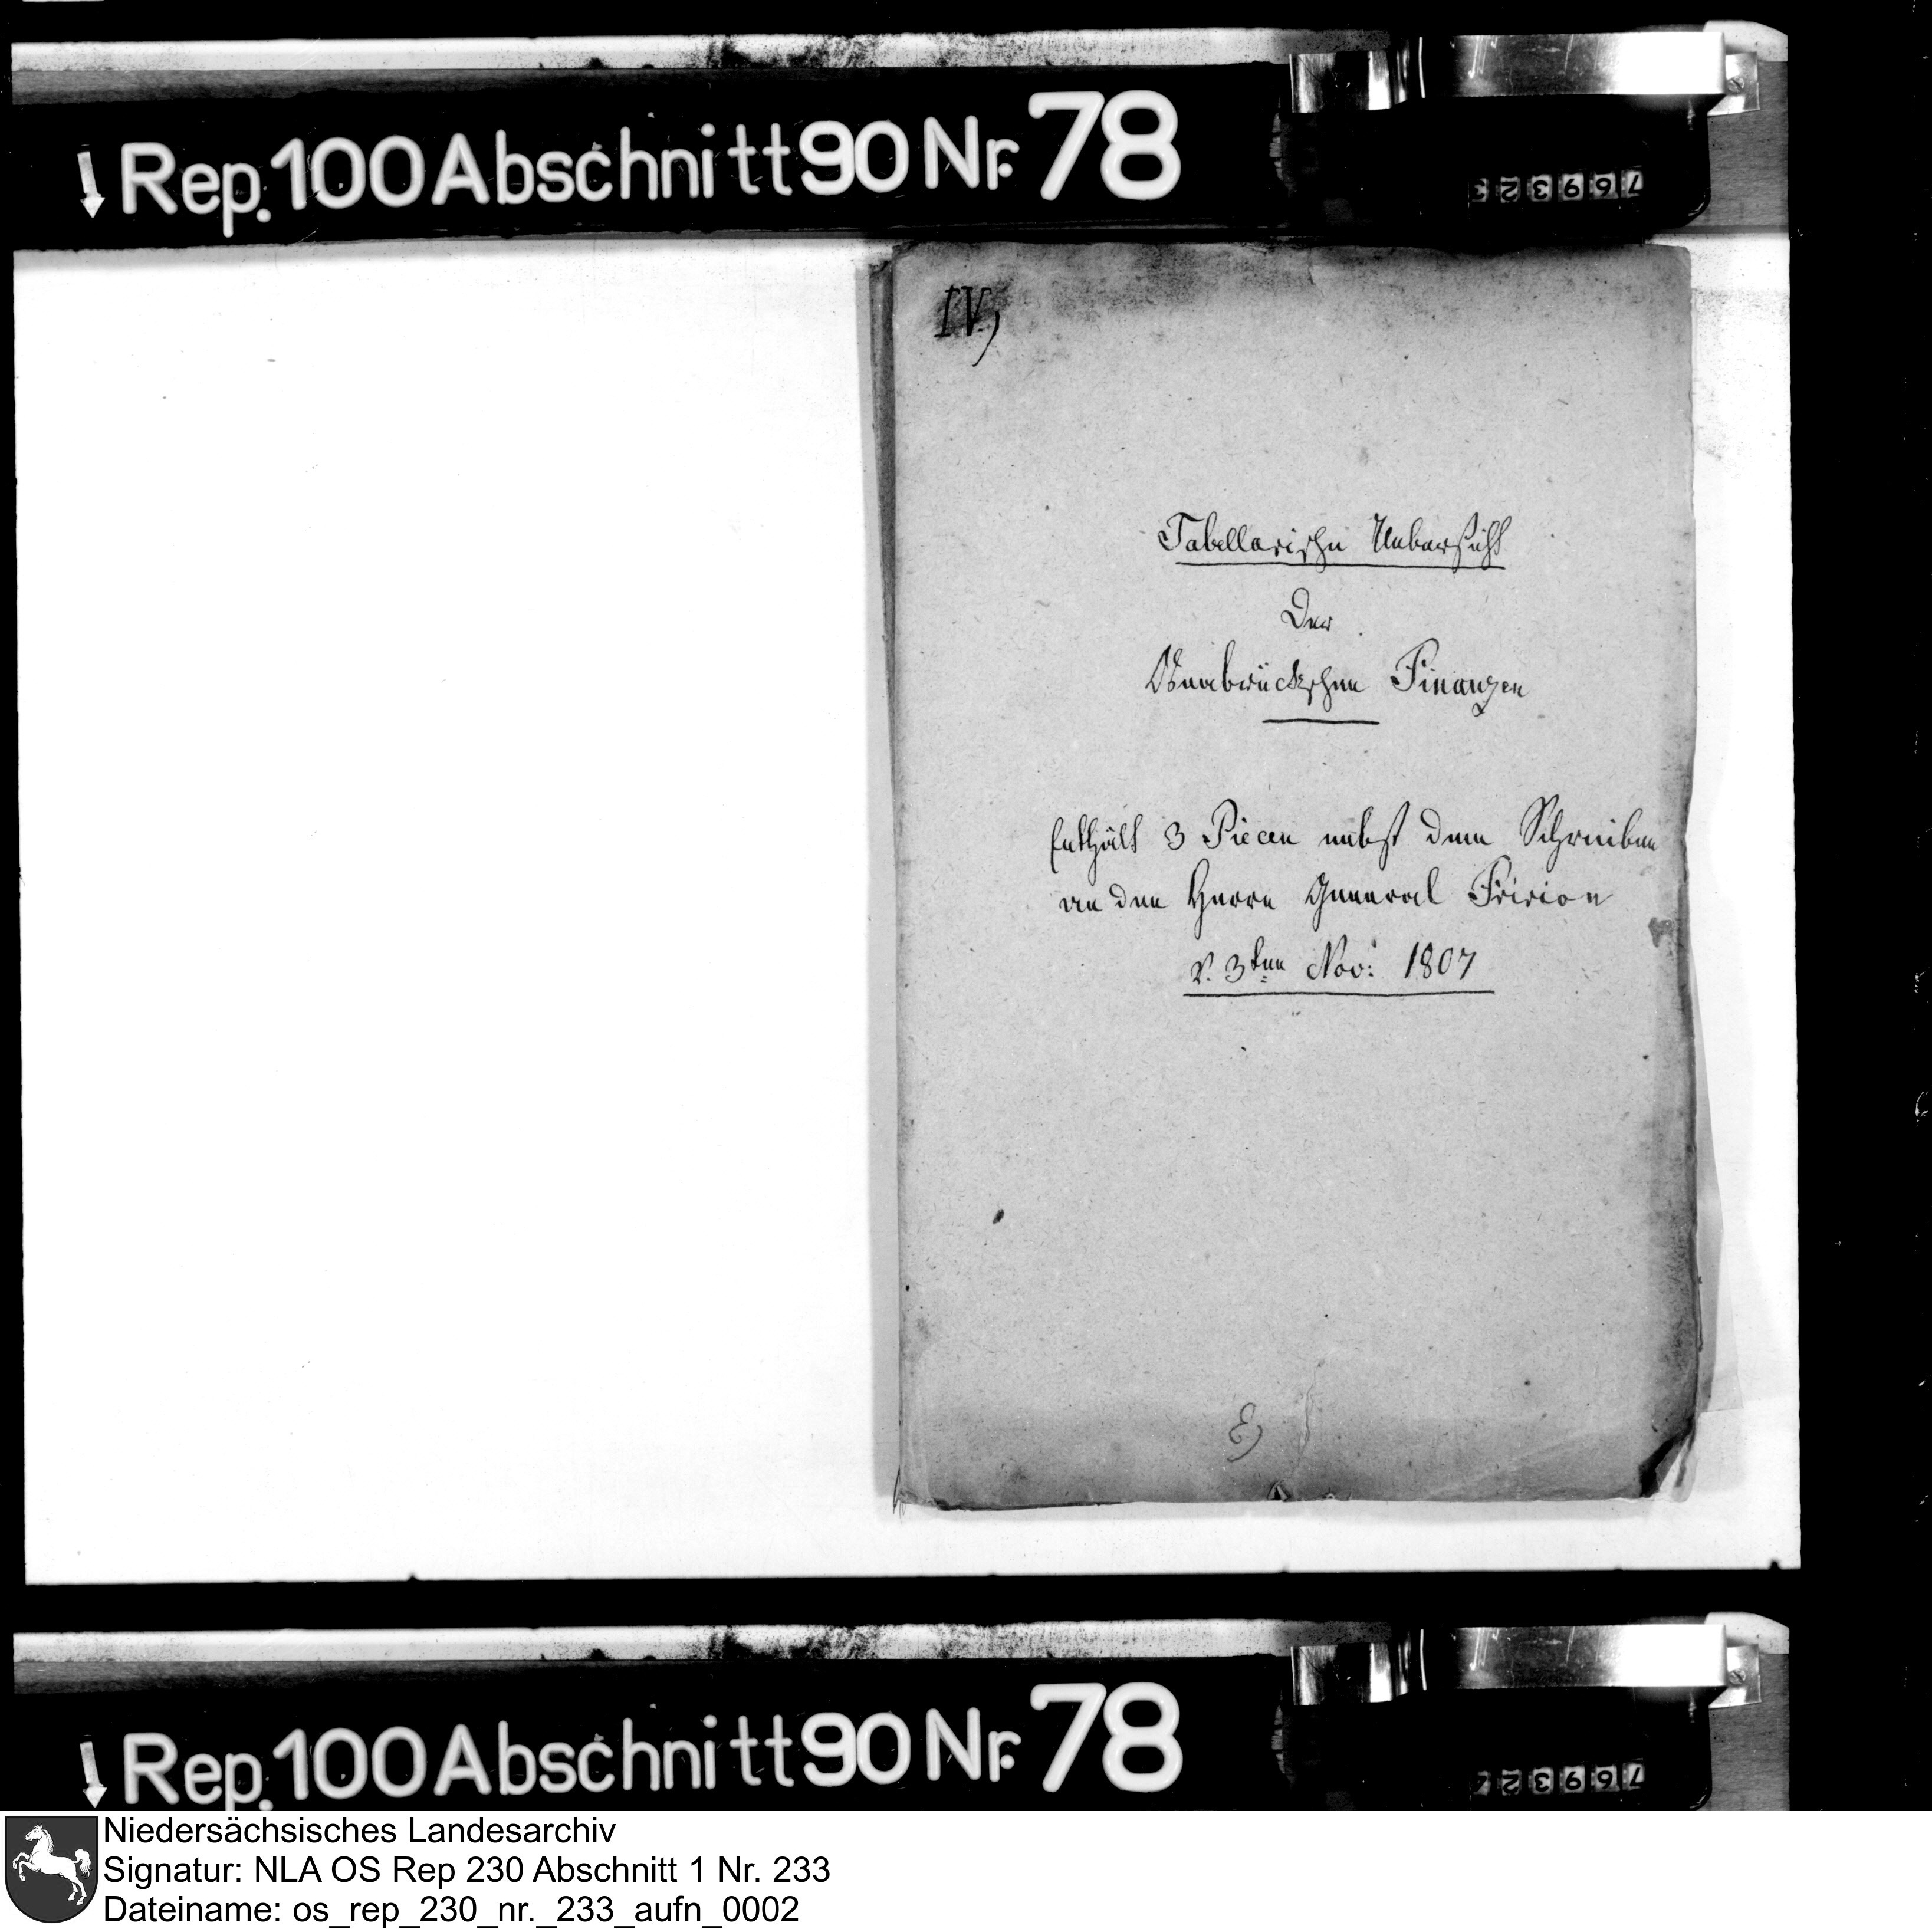 Rep. 100 Abschnitt 90 Nr. 78
IV.)
Tabellarische Uebersicht
Der
Osnabrückschen Finanzen
Enthält 3 Piecen nebst dem Schreiben
an den Herrn General Fririon
v. 3ten Nov: 1807
E)
Rep. 100 Abschnitt 90 Nr. 78
Niedersächsisches Landesarchiv
Signatur: NLA OS Rep 230 Abschnitt 1 Nr. 233
Dateiname: os_rep_230_nr._233_aufn_0002